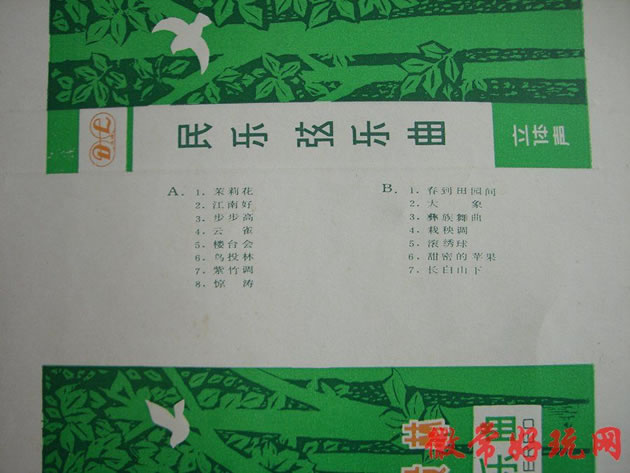 民乐 弦乐曲
立体声
A. 1、茉莉花
2、江南好
3、步步高
4、云雀
5、楼台会
6、鸟投林
7、紫竹调
8、惊涛
B. 1、春到田园间
2、大象
3、彝族舞曲
4、栽秧调
5、滚绣球
6、甜密的苹果
7、长白山下
徽常好玩网